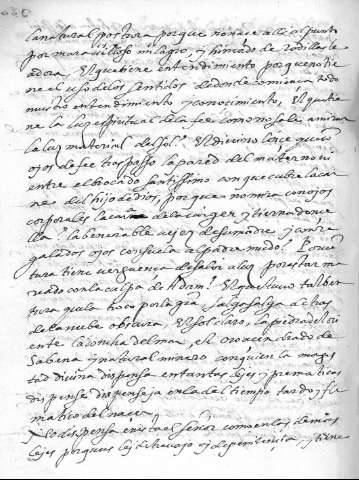 la natural postora porque no nace alli el punto
por maravilloso milagro, y hincado de rodillas le
adora, El que bine entendimiento porque no tie
ne el uso de los sentidos de donde comiença todo
nuestro entendimiento y conocimiento, El que tie
ne la luz espiritual de la fee como no sale a mirar
la luz material del sol? El divino lince que con
ojos de fee traspasso la pared del materno vi
entre el brocado santissimo con que cubre la car
ne del hijo de dios, porque no mira con ojos
corporales la cara de la virgen y tierna donce
lla? la venerable vejez de su madre y con re
galados ojos consuela al padre mudo?
tura tiene verguença de salir a luz por estar ma
culado con la culpa de Adam? El que tuvo tal ber
tura que la toca por la gracia salga salga de tras
de la nube obscura, El sol claro, la piedra de ori
ente la concha del mar, el oro acendrado de
su vena y natural minero con quien la mages
tad divina dispensa en tantas leyes y prematicas
dispense dispense ya en la del tiempo tardo y fle
matico del nacer
No dispensa en esta el señor como en las demas
leyes porque es ley de travajo y de penitencia, y tiene